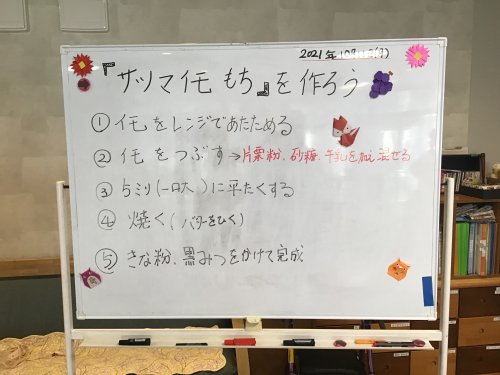 2021年10月
『サツマイモもち』を作ろう
①イモをレンジであたためる
②イモをつぶす→片栗粉、砂糖、牛乳を加え混ぜる
③5ミリ(一口大)に平たくする
④焼く(バターをひく)
⑤きな粉、黒みつをかけて完成